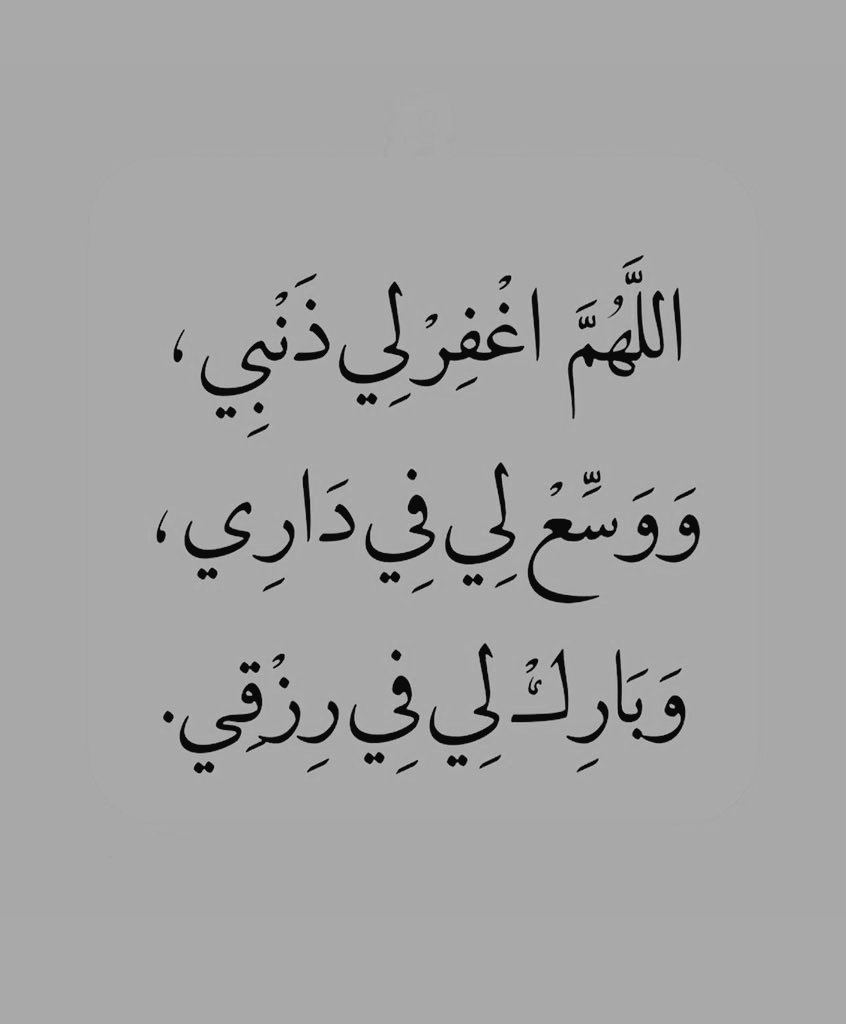 اللَّهُمَّ اغْفِرْ لِي ذَنْبِي ،
وَوَسِّعْ لِي فِي دَارِي ،
وَبَارِكْ لِي فِي رِزْقِي.